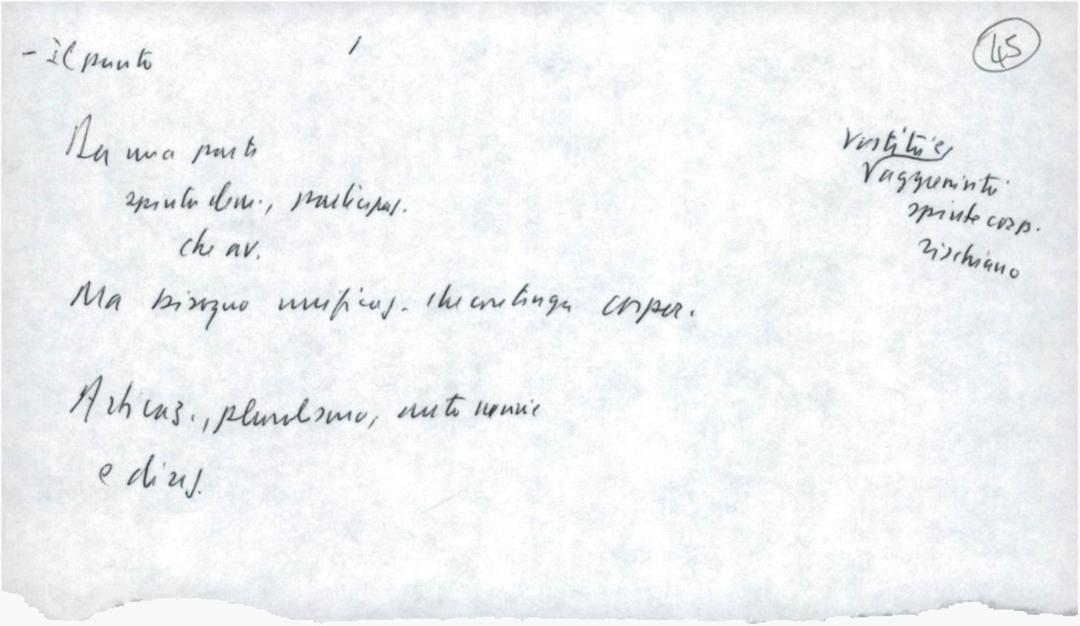 - Il punto
45
Da una parte
spinta dem., participaz.
che av.
Ma bisogno unificaz. che contenga corpor.
Articaz., pluralismo, autonomie
e direz.
raggruppamenti
spinte corp.
rischiano